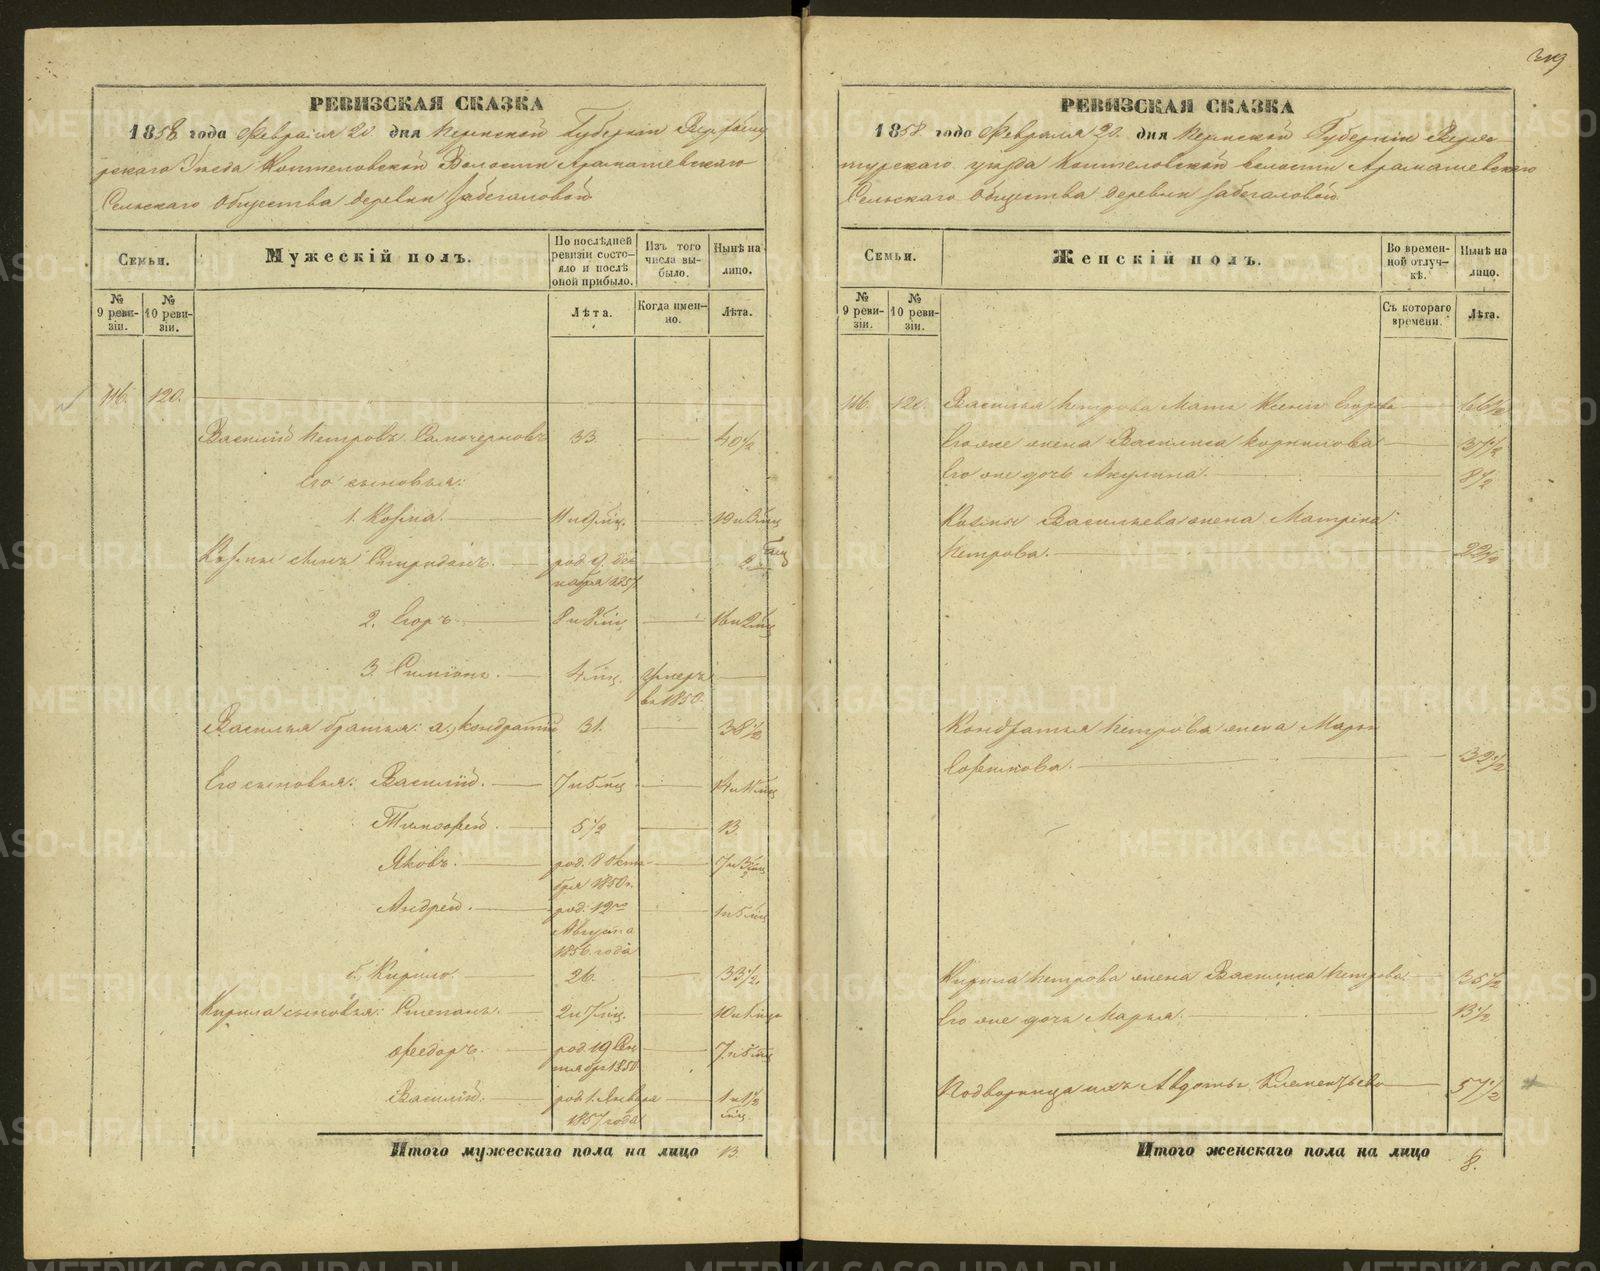 319
РЕВИЗСКАЯ СКАЗКА
1858 года Февраля 20 дня Пермской Губернiи Верхоту
рскаго Уезда Коптеловской Волости Арамашевскаго
Сельскаго Общества деревни Забегаловой
Семьи.
Мужескiй полъ.
По послѣдней ревизiи состо-
яло и послѣ оной прибыло.
Изъ того числа вы-
было.
Нынѣ на лицо.
№ 9 реви-
зiи.
№ 10 реви-
зiи.
Лѣта.
Когда имен-
но.
Лѣта.
116. 120.
Василiй Петровъ Самочерновъ 33. 40 1/2
Его сыновья:
1. Козма. 11 и 9 мѣс. 19 и 3 мѣс
Козмы сынъ Спиридонъ. род. 9. Дек
1857. 2 мѣс
2. Егоръ 8 и 8 мѣс 16 и 2 мѣс
3. Симионъ. 4 мѣс. Умеръ
въ 1850.
Василья братья: а., Кондратiй 31. 38 1/2
Его сыновья: Василiй. 7 и 5 мѣс 14 и 11 мѣс
Тимофей. 5 1/2 13.
Яковъ. род. 8 Октя
бря 1850 г. 7 и 3 мѣс
Андрей. род. 19го
Августа
1856. года 1 и 5 мѣс
б., Кирило. 26. 33 1/2
Кирила сыновья: Степанъ. 2 и 7 мѣс. 10 и 1 мѣс
Федоръ. род. 19 Сен
тября 1850 7 и 5 мѣс
Василiй. род. 1. Января
1857 года 1 и 1 1/2
мѣс.
Итого мужескаго пола на лицо 13.
РЕВИЗСКАЯ СКАЗКА
1858 года Февраля 20. дня Пермской Губернiи Верхо
турскаго уезда Коптеловской волости Арамашевскаго
Сельскаго Общества деревни Забегаловой.
Семьи.
Женскiй полъ.
Во времен-
ной отлуч-
кѣ.
Нынѣ на лицо.
№ 9 реви-
зiи.
№ 10 реви-
зiи.
Съ котораго времени.
Лѣта.
116. 120. Василья Петрова Мать Ксенiя Егорова 66 1/2
Его же жена Василиса Корнилова 37 1/2
Его же дочь Акулина. 8 1/2
Козмы Васильева жена Матрена
Петрова. 22 1/2
Кондратья Петрова жена Марья
32 1/2
Кирила Петрова жена Василиса Петрова 35 1/2
Его же дочь Марья. 13 1/2
Подворница ихъ Авдотья Клементьева 57 1/2
Итого женскаго пола на лицо 8.
METRIKI.GASO-URAL.RU